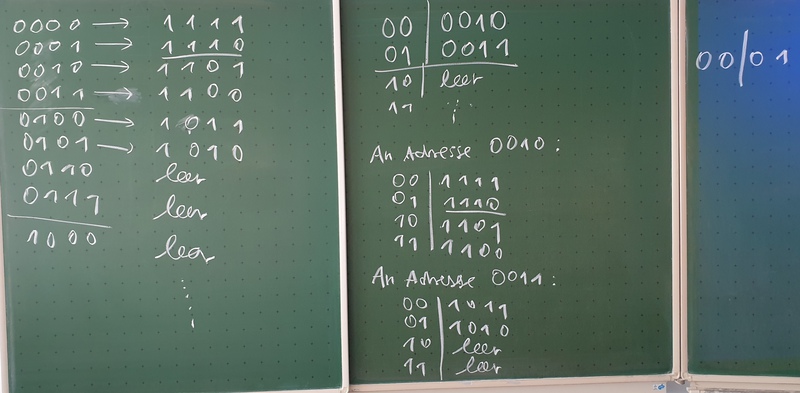 0000 → 1111
0001 → 1110
0010 → 1101
0011 → 1100
0100 → 1011
0101 → 1010
0110 leer
0111 leer
1000 leer
00 | 0010
01 | 0011
10 | leer
11
An Adresse 0010:
00 | 1111
01 | 1110
10 | 1101
11 | 1100
An Adresse 0011:
00 | 1011
01 | 1010
10 | leer
11 | leer
00/01